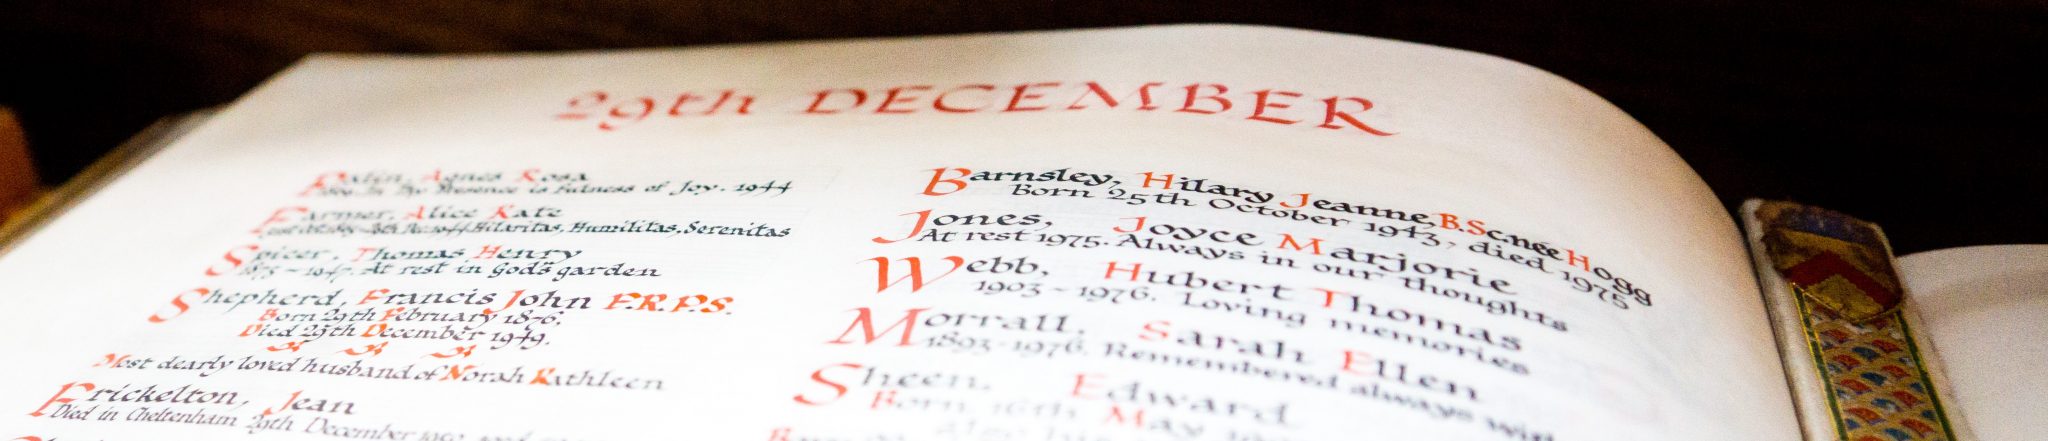 29th DECEMBER
Agnes Rosa
In Thy Presence is Fulness of Joy. 1944
Farmer, Alice Kate
Hilaritas, Humilitas, Serenitas
Spicer, Thomas Henry
1873 – 1947. At rest in God's garden
Shepherd, Francis John F.R.P.S.
Born 29th February 1876.
Died 29th December 1949.
Most dearly loved husband of Norah Kathleen
Frickelton, Jean
Died in Cheltenham 29th December
Barnsley, Hilary Jeanne, B.Sc. née Hogg
Born 25th October 1943, died 1975
Jones, Joyce Marjorie
At rest 1975. Always in our thoughts
Webb, Hubert Thomas
1903 – 1976. Loving memories
Morrall, Sarah Ellen
1893 – 1976. Remembered always with
Sheen, Edward
Born 16th May